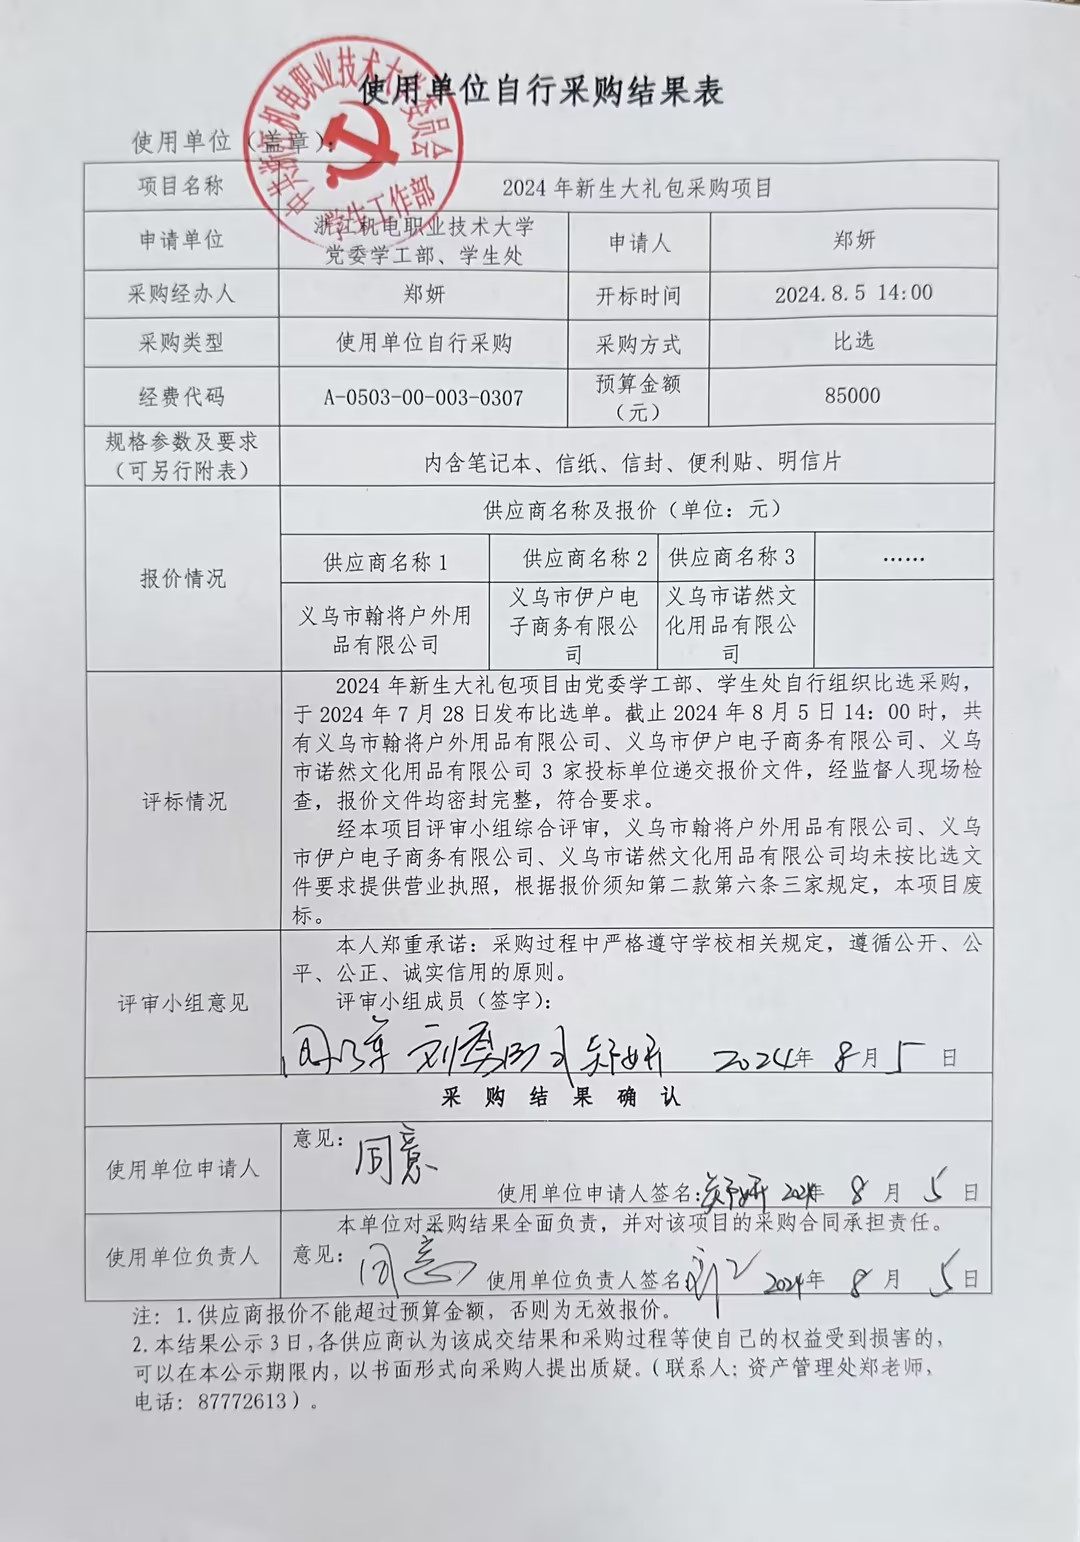 使用单位自行采购结果表
使用单位（盖章）：
中共浙江机电职业技术大学委员会
学生工作部
项目名称 2024年新生大礼包采购项目
申请单位 浙江机电职业技术大学
党委学工部、学生处 申请人 郑妍
采购经办人 郑妍 开标时间 2024.8.5 14:00
采购类型 使用单位自行采购 采购方式 比选
经费代码 A-0503-00-003-0307 预算金额
（元） 85000
规格参数及要求
（可另行附表） 内含笔记本、信纸、信封、便利贴、明信片
报价情况
供应商名称及报价（单位：元）
供应商名称1 供应商名称2 供应商名称3 ……
义乌市翰将户外用
品有限公司
义乌市伊户电
子商务有限公
司
义乌市诺然文
化用品有限公
司
评标情况
2024年新生大礼包项目由党委学工部、学生处自行组织比选采购，
于2024年7月28日发布比选单。截止2024年8月5日14：00时，共
有义乌市翰将户外用品有限公司、义乌市伊户电子商务有限公司、义乌
市诺然文化用品有限公司3家投标单位递交报价文件，经监督人现场检
查，报价文件均密封完整，符合要求。
经本项目评审小组综合评审，义乌市翰将户外用品有限公司、义乌
市伊户电子商务有限公司、义乌市诺然文化用品有限公司均未按比选文
件要求提供营业执照，根据报价须知第二款第六条三家规定，本项目废
标。
评审小组意见
本人郑重承诺：采购过程中严格遵守学校相关规定，遵循公开、公
平、公正、诚实信用的原则。
评审小组成员（签字）：
郑妍 2024年8月5日
采购结果确认
使用单位申请人
意见：同意
使用单位申请人签名：郑妍 2024年8月5日
使用单位负责人
本单位对采购结果全面负责，并对该项目的采购合同承担责任。
意见：同意 使用单位负责人签名： 2024年8月5日
注：1.供应商报价不能超过预算金额，否则为无效报价。
2.本结果公示3日，各供应商认为该成交结果和采购过程等使自己的权益受到损害的，
可以在本公示期限内，以书面形式向采购人提出质疑。（联系人：资产管理处郑老师，
电话：87772613）。